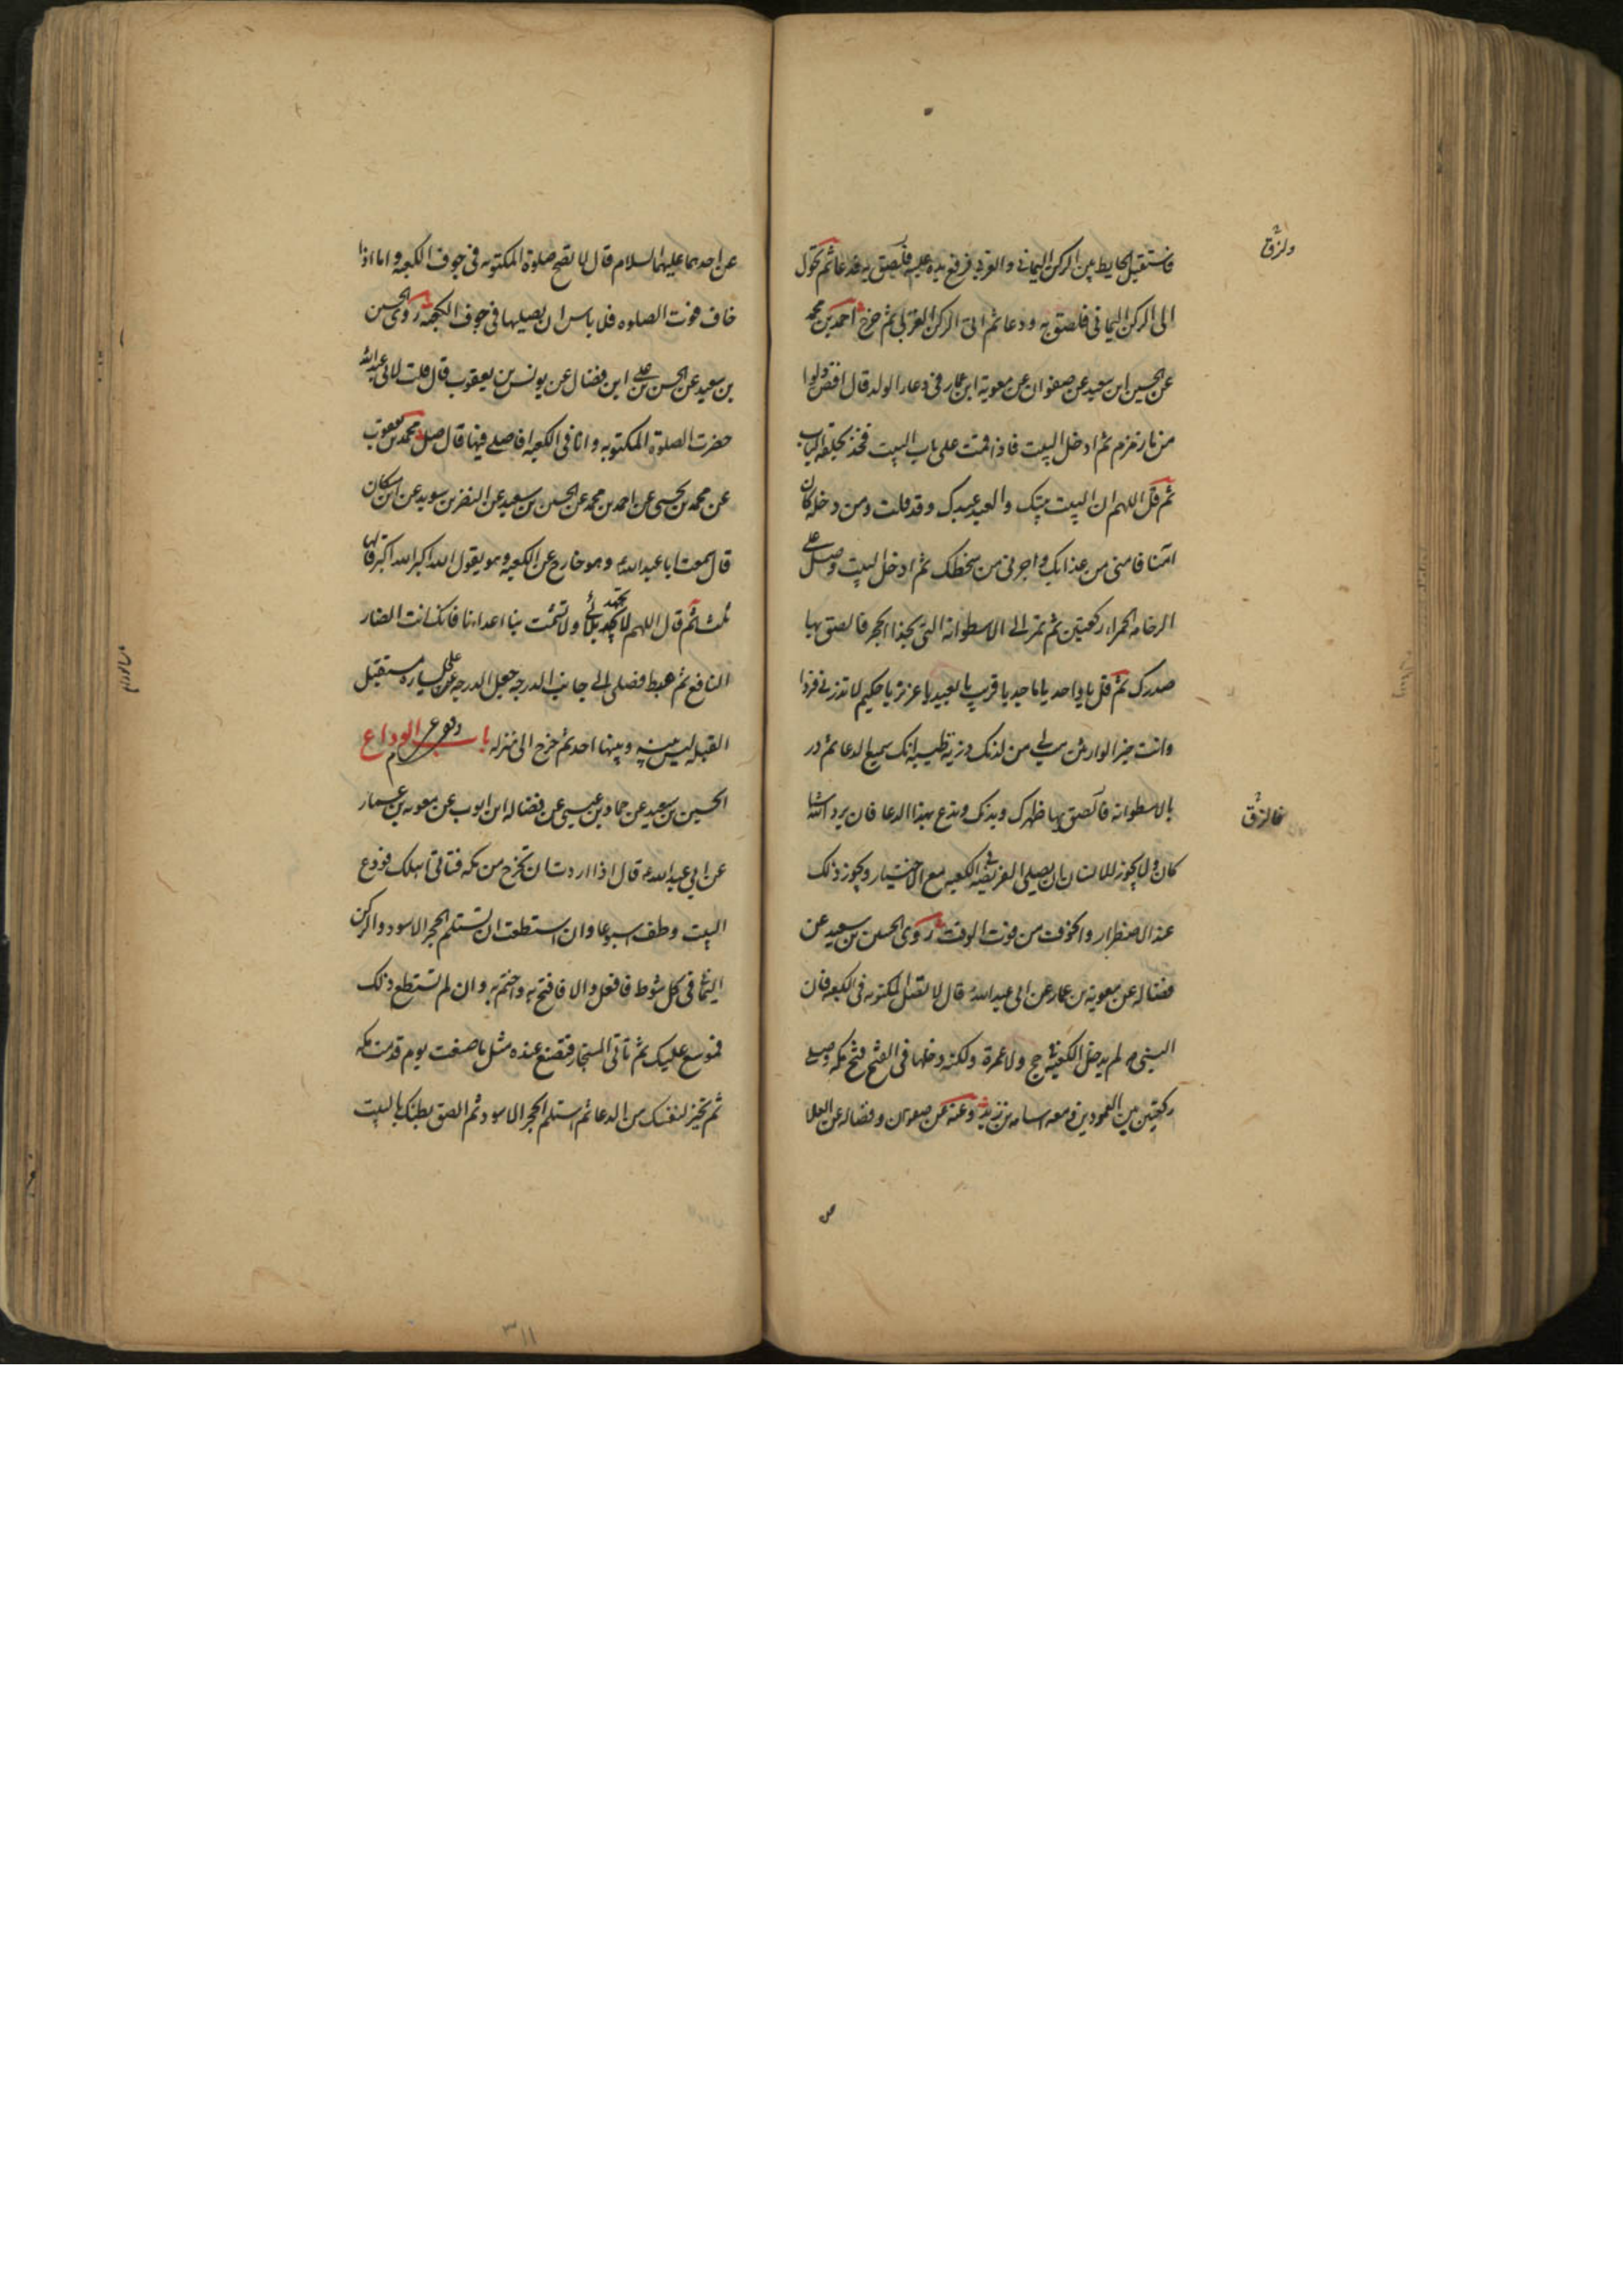 فاستقبل الحايط بين الركن اليماني والغربي فرفع يده عليه فلصق به فدعا ثم تحول
الى الركن اليماني فلصق به ودعا ثم اتى الركن الغربي ثم خرج احمد بن محمد
عن الحسين ابن سعيد عن صفوان عن معوية ابن عمار في دعاء الولد قال افض دلوا
من ماء زمزم ثم ادخل البيت فاذا قمت على باب البيت فخذ بحلقة الباب
ثم قل اللهم ان البيت بيتك والعبد عبدك وقد قلت ومن دخله كان
امنا فامني من عذابك واجرني من سخطك ثم ادخل البيت وصل على
الرخامة الحمراء ركعتين ثم تمر الى الاسطوانة التي بحذا الحجر فالصق بها
صدرك ثم قل يا واحد يا ماجد يا قريب يا بعيد يا عزيز يا حكيم لا تذرني فردا
وانت خير الوارثين هب لي من لدنك ذرية طيبة انك سميع الدعا ثم در
بالاسطوانة فالصق بها ظهرك وبدنك وتدع بهذا الدعا فان يرد الله شيا
كان ولا يجوز للانسان ان يصلي الفريضة في الكعبة مع الاختيار ويجوز ذلك
عند الاضطرار والخوف من فوت الوقت روى الحسين بن سعيد عن
فضاله عن معوية بن عمار عن ابي عبد الله ع قال لا تصل المكتوبه في الكعبه فان
النبي ص لم يدخل الكعبة في حج ولا عمرة ولكنه دخلها في الفتح فتح مكه وصلى
ركعتين بين العمودين ومعه اسامه بن زيد وعنه عن صفوان وفضاله عن العلا
ولزق
فالزق
عن
عن احدهما عليهما السلام قال لا تصح صلوة المكتوبه في جوف الكعبه واما اذا
خاف فوت الصلوه فلا باس ان يصليها في جوف الكعبه روى الحسين
بن سعيد عن الحسن بن علي ابن فضال عن يونس بن يعقوب قال قلت لابي عبد الله
حضرت الصلوة المكتوبه وانا في الكعبه افاصلي فيها قال صل محمد بن يعقوب
عن محمد بن يحيى عن احمد بن محمد عن الحسين بن سعيد عن النضر بن سويد عن ابن مسكان
قال سمعت ابا عبد الله ع وهو خارج عن الكعبه وهو يقول الله اكبر الله اكبر قالها
ثلثا ثم قال اللهم لا تجهد بلائي ولا تشمت بنا اعداءنا فانك انت الضار
النافع ثم هبط فصلى الى جانب الدرجه جعل الدرجه عن يساره مستقبل
القبله ليس بينه وبينها احد ثم خرج الى منزله باب الوداع
الحسين بن سعيد عن حماد بن عيسى عن فضاله ابن ايوب عن معوية بن عمار
عن ابي عبد الله ع قال اذا اردت ان تخرج من مكه فتاتي اهلك فودع
البيت وطف اسبوعا وان استطعت ان تستلم الحجر الاسود والركن
اليماني في كل شوط فافعل والا فافتح به واختم به وان لم تستطع ذلك
فموسع عليك ثم تاتي المستجار فتصنع عنده مثل ما صنعت يوم قدمت مكه
ثم تخير لنفسك من الدعا ثم استلم الحجر الاسود ثم الصق بطنك بالبيت
٣١١